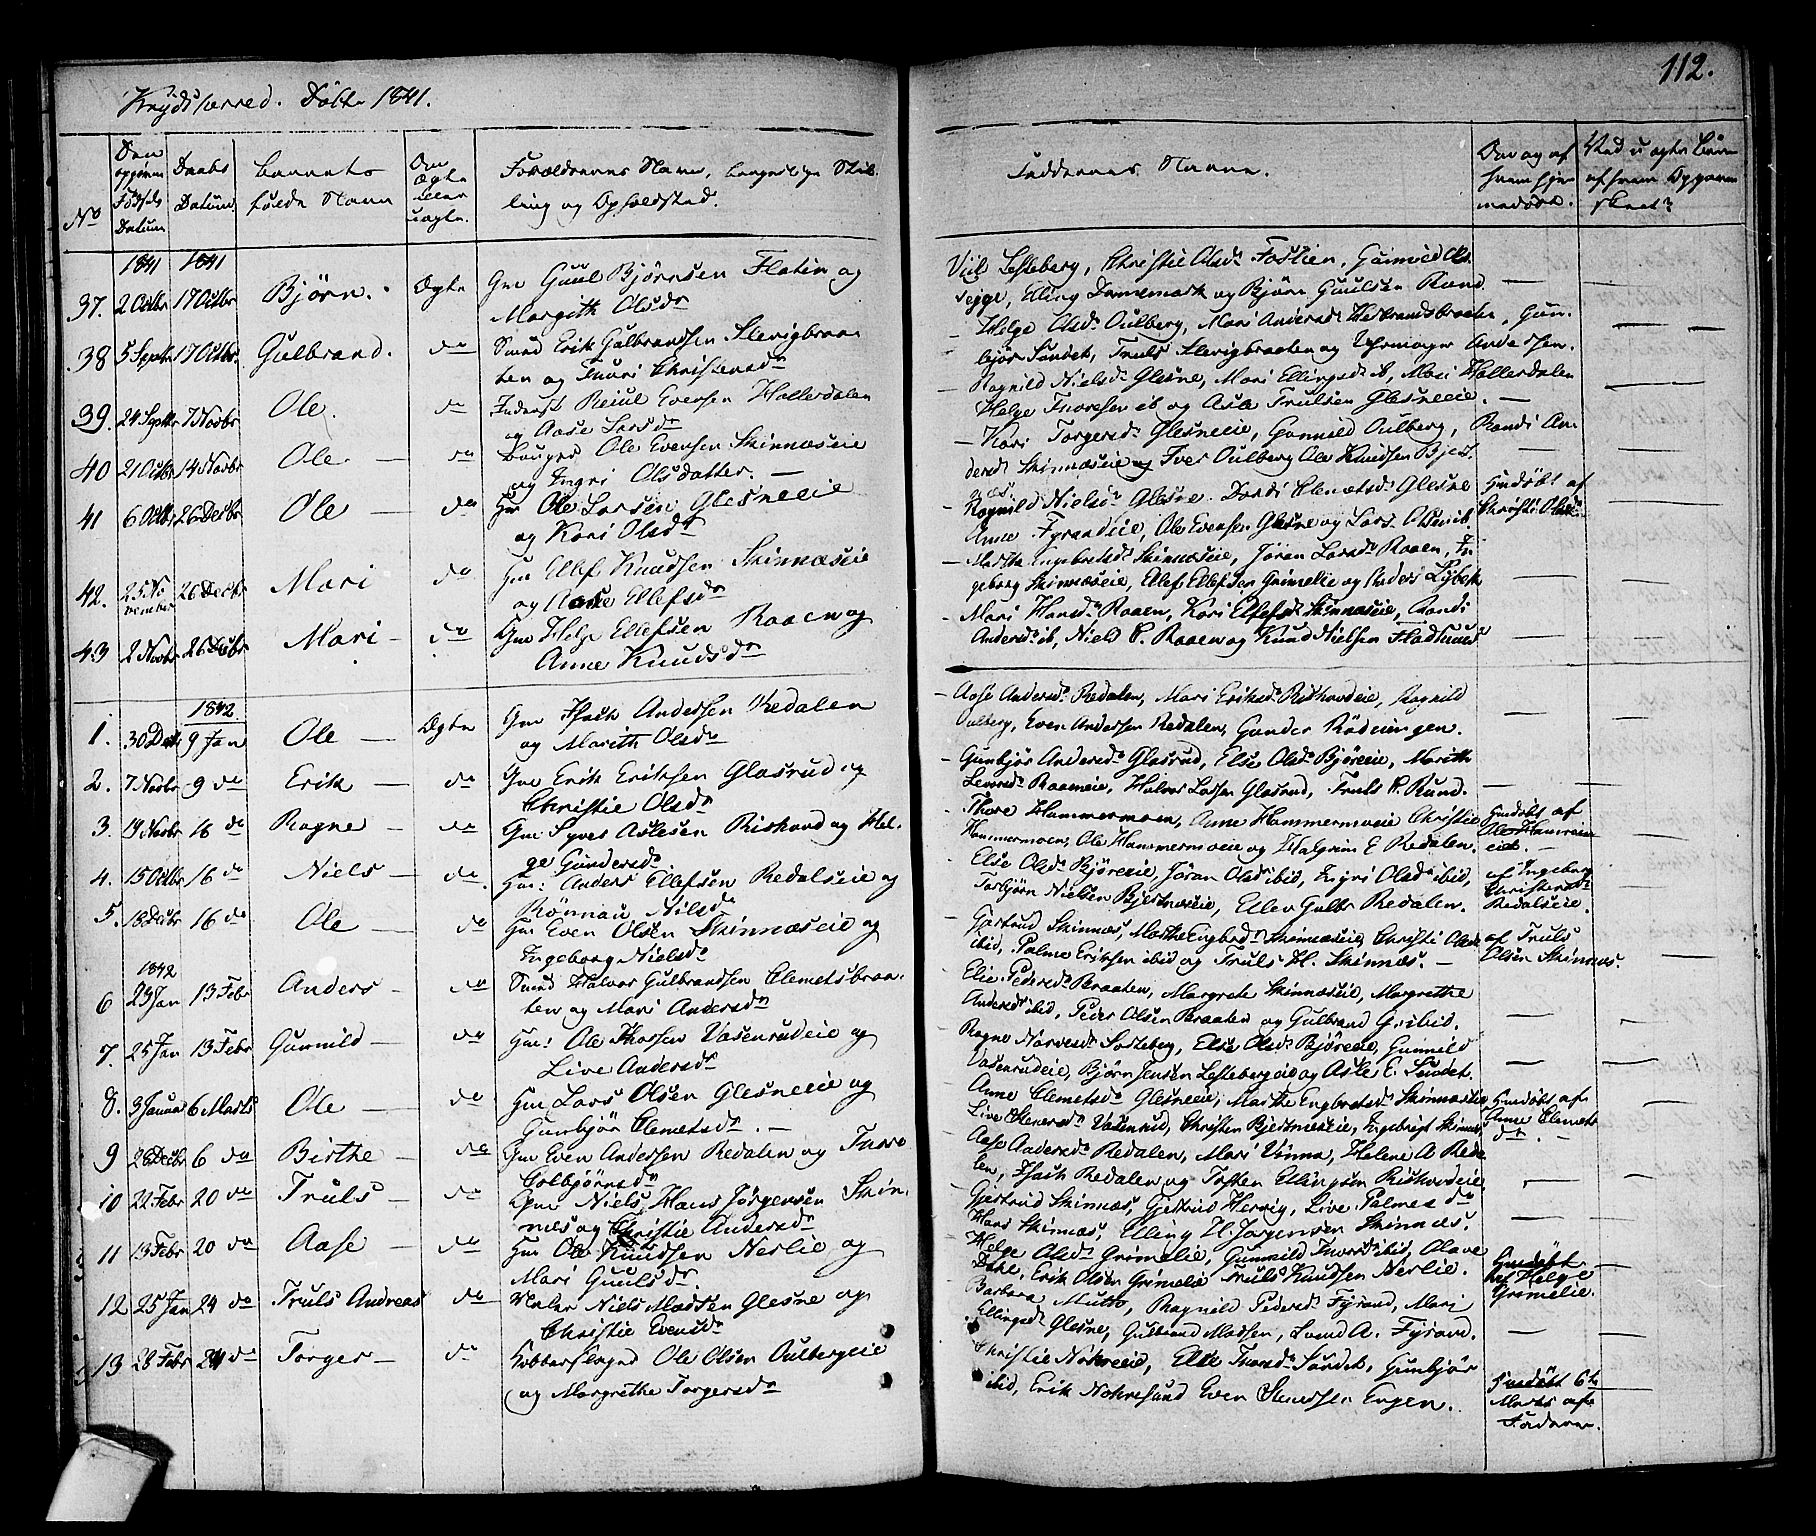 112.
Krydsherred. Døbte 1841.
No
Den opgivne Fødsels Datum
Daabs Datum
Barnets fulde Navn
Om Ægte eller uægte.
Forældrenes Navn, borgerlige Stilling og Opholdsted.
Faddernes Navne.
Om og af hvem hjemmedøbt.
1841 1841
37. 2 Octbr 17 Octbr Bjørn. Ægte Gm Guul Bjørnsen Flatin og
Margith Olsdr
Lesteberg, Christie Olsdr
Elling Dannemark og Bjørn Guulsen Rund.
38 5 Septbr 17 Octbr. Gulbrand. do Erik Gulbrandsen
og Christensdr
Helge Olsdr Oulberg, Mari Andersdr
Sundet, Truls
39. 24 Septbr 7 Novbr Ole. do Evensen Hallerdalen
og Aase Larsdr
Ragnild Nielsdr Glesne, Mari Ellingsdr ib, Mari Hallerdalen
Helge Thoresen ib og Asle Trulsen Glesneeie.
40 21 Octbr 14 Novbr Ole do Ole Evensen Skinnæseie
og Ingri Olsdatter.
Kari Torgersdr Glesneeie, Gunnild Oulberg, Randi An-
dersdr Skinnæseie og Iver Oulberg Ole Knudsen
41 6 Octbr 26 Decbr Ole do Gm Ole Larsen Glesneeie
og Kari Olsdr
Ragnild Nielsdr Glesne. Clemetsdr Glesne
Anne Fyrandeie, Ole Evensen Glesne og Lars Olsen ib.
Hmdøbt af
Christi Olsdr
42. 25 No
vember 26 Decbr Mari do Gm Ellef Knudsen Skinnæseie
og Aase Ellefsdr
Marthe Engebretsdr Skinnæseie, Jøran Larsdr Raaen, In
geborg Skinnæseie, Ellef Ellefsen Grimelie og Anders
43 2 Novbr 26 Decbr Mari do Gm Helge Ellefsen Raaen og
Anne Knudsdr
Mari Hansdr Raaen, Kari Ellefsdr Skinnæseie, Randi
Andersdr ib, Niels P. Raaen og Knud Nielsen
1842
1. 30 Decbr 9 Jan Ole Ægte Gm Isach Andersen Redalen
og Marith Olsdr
Aase Andersdr Redalen, Mari Eriksdr Riskovdeie, Ragnild
Oulberg, Even Andersen Redalen, Gunder Rødningen.
2. 7 Novbr 9 do Erik do Gm Erik Eriksen Glasrud og
Christie Olsdr
Gunbjør Andersdr Glasrud, Else Olsdr Bjøreeie, Marith
Halvor Larsen Glasrud, Truls P. Rund.
3. 19 Novbr 16 do Ragne do Gm Syver Aslesen Riskovd og Hel-
ge Gundersdr
Thore Hammermoen, Anne Hammermoeie Christie
Hammermoen, Ole Hammermoeie og Halgrim E Redalen.
Hmdøbt af
4. 15 Octbr 16 do Niels do Gm: Anders Ellefsen Redalseie og
Rønnau Nilsdr
Else Olsdr Bjøreeie, Jøran Olsdr ibid, Ingri Olsdr ibid,
Torbjørn Nielsen Bjertnæseie, Ellev Gulbr Redalen.
af Ingeborg
Christensdr
Redalseie.
5. 18 Decbr 16 do Ole do Gm Even Olsen Skinnæseie og
Ingeborg Nielsdr
Gjertrud Skinnæs, Marthe Engbrdr Skinnæseie, Christi Olsdr
ibid, Palme Eriksen ibid og Truls H. Skinnæs.
af Truls
Olsen Skinnæs.
1842
6 23 Jan 13 Febr Anders do Halvor Gulbrandsen Clemetsbraa-
ten og Mari Andersdr
Elie Pedersdr Braaten, Margrete Skinnæseie, Margrethe
Andersdr ibid, Peder Olsen Braaten og Gulbrand ibid.
7. 25 Jan 13 Febr Gunnild do Gm: Ole Thorsen Vasenrudeie og
Live Andersdr
Ragne Else Olsdr Bjøreeie, Gunnild
Vasenrudeie, Bjørn Jensen Lesteberg eie og Asle E. Sundet.
8. 3 Januar 6 Marts Ole do Gm Lars Olsen Glesneeie og
Gunbjør Clemetsdr.
Anne Clemetsdr Glesneeie, Marthe Engbretsdr Skinnæseie
Live Stenersdr Vasenrud, Christen Bjertnæseie, Engebrigt Skinnæs
Hmdøbt af
Anne Clemets
dr.
9 26 Decbr 6 do Birthe do Gm Even Andersen Redalen og Thore
Colbjørnsdr
Aase Andersdr Redalen, Mari Vinna, Helene A Reda
len, Isach Redalen og Tosten Ellingsen Riskovdeie
10 22 Febr 20 do Truls do Gm Niels Hans Jørgensen Skin-
næs og Christie Andersdr
Gjertrud Skinnæs, Gjertrud Hervig, Live Palmesdr
Hans Skinnæs, Elling H. Jørgensen Skinnæs.
11 13 Febr 20 do Aase do Gm Ole Knudsen Nerlie og
Mari Guulsdr
Helge Olsdr Grimelie, Gunnild Thorsdr ibid, Olave
Erik Olsen Grimelie Truls Knudsen Nerlie.
Hmdøbt
af Helge
Grimelie.
12 25 Jan 24 do Truls Andreas do Maler Niels Madsen Glesne og
Christie Evensdr
Barbara Ragnild Pedersdr Fyrand, Mari
Ellingsdr Glesne, Gulbrand Madsen, Svend A. Fyrand.
13 28 Febr 24 do Torger do Kobberslager Ole Olsen Oulbergeie
og Margrethe Torgersdr
Christie Else Thorsdr Sundet, Gunbjør
ibid, Erik Nokresund Even Stensen Engen.
Hmdøbt 6te
Marts af
Faderen.